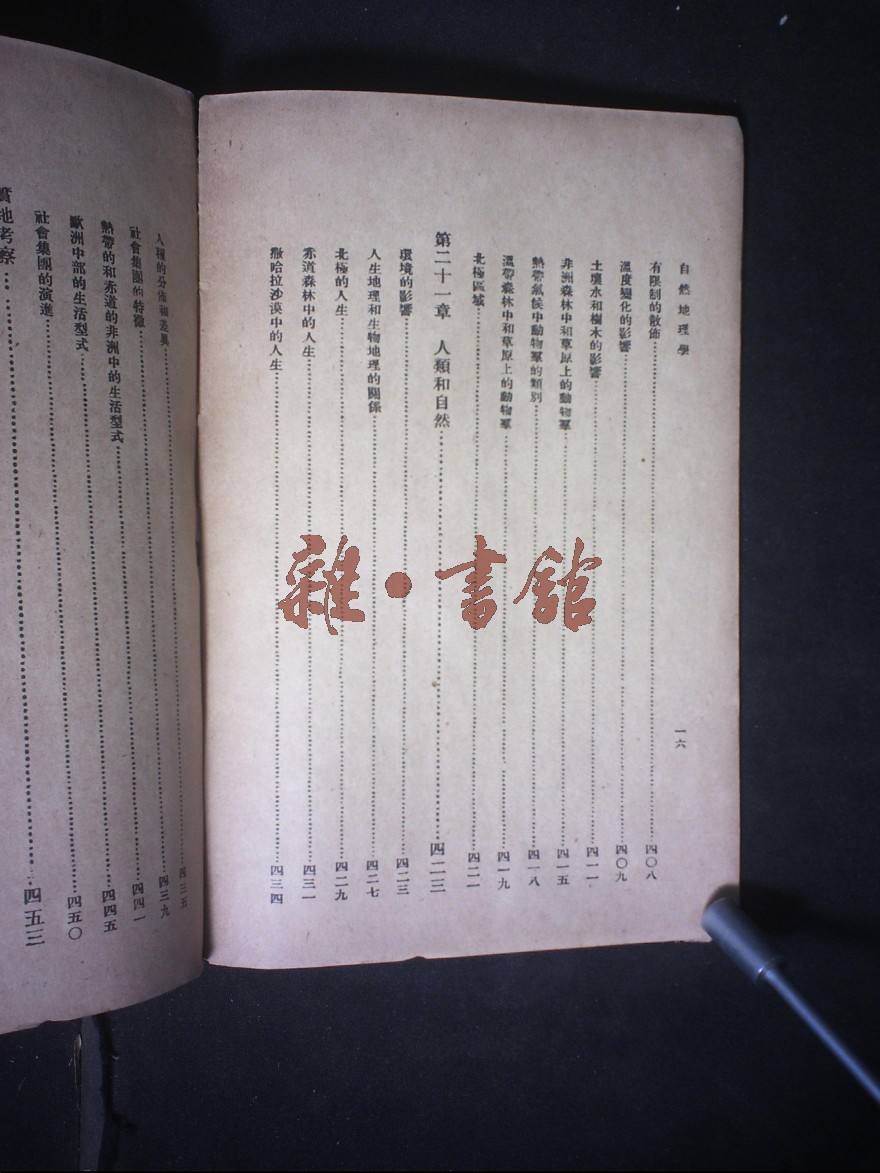 自然地理學
一六
有限制的散佈……四〇八
溫度變化的影響……四〇九
土壤水和樹木的影響……四一一
非洲森林中和草原上的動物羣……四一五
熱帶氣候中動物羣的類別……四一八
溫帶森林中和草原上的動物羣……四一九
北極區域……四二一
第二十一章 人類和自然……四二三
環境的影響……四二三
人生地理和生物地理的關係……四二七
北極的人生……四二九
赤道森林中的人生……四三一
撒哈拉沙漠中的人生……四三四
人種的分佈和差異……四三五
社會集團的特徵……四三九
熱帶的和赤道的非洲中的生活型式……四四一
歐洲中部的生活型式……四四五
社會集團的演進……四五〇
實地考察……四五三
雜·書館